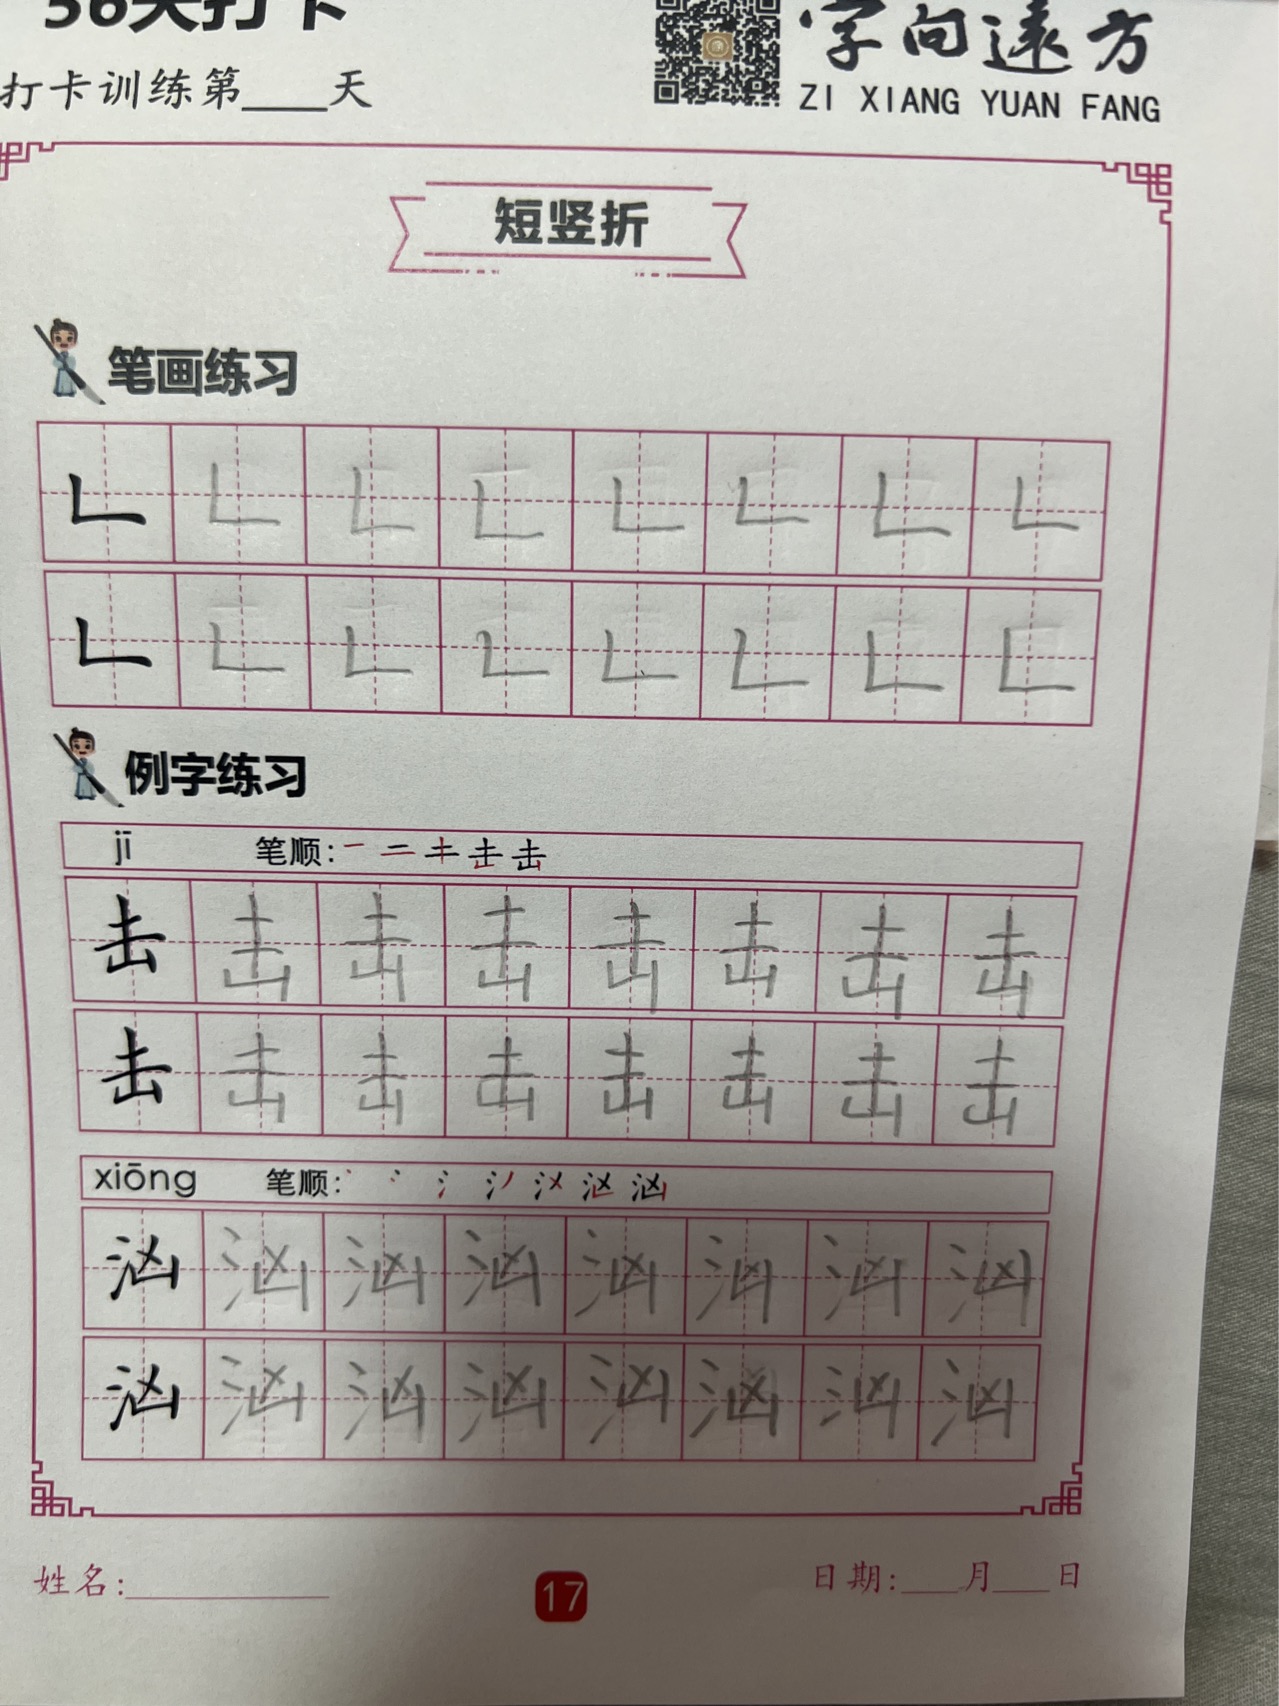 56天打卡
字向远方
打卡训练第____天
ZI XIANG YUAN FANG
短竖折
笔画练习
𠃊 𠃊 𠃊 𠃊 𠃊 𠃊 𠃊 𠃊
𠃊 𠃊 𠃊 𠃊 𠃊 𠃊 𠃊 𠃊
例字练习
jī 笔顺: 一 二 キ 击 击
击 击 击 击 击 击 击 击
击 击 击 击 击 击 击 击
xiōng 笔顺:
汹 汹 汹 汹 汹 汹 汹 汹
汹 汹 汹 汹 汹 汹 汹 汹
姓名:__________ 17 日期:___月___日